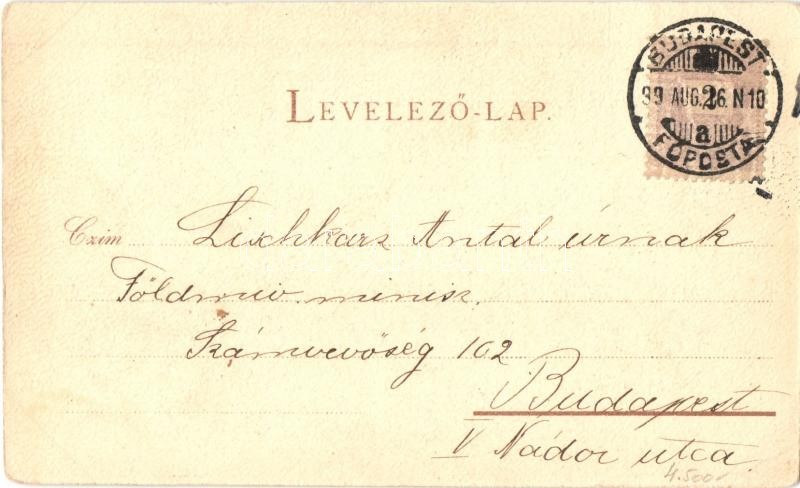 BUDAPEST
99 AUG. 26. N10
a
FŐPOSTA
LEVELEZŐ-LAP.
Czim Lischkarz Antal úrnak
Földmiv. minisz.
Számvevőség 102
Budapest
V Nádor utca
4.500